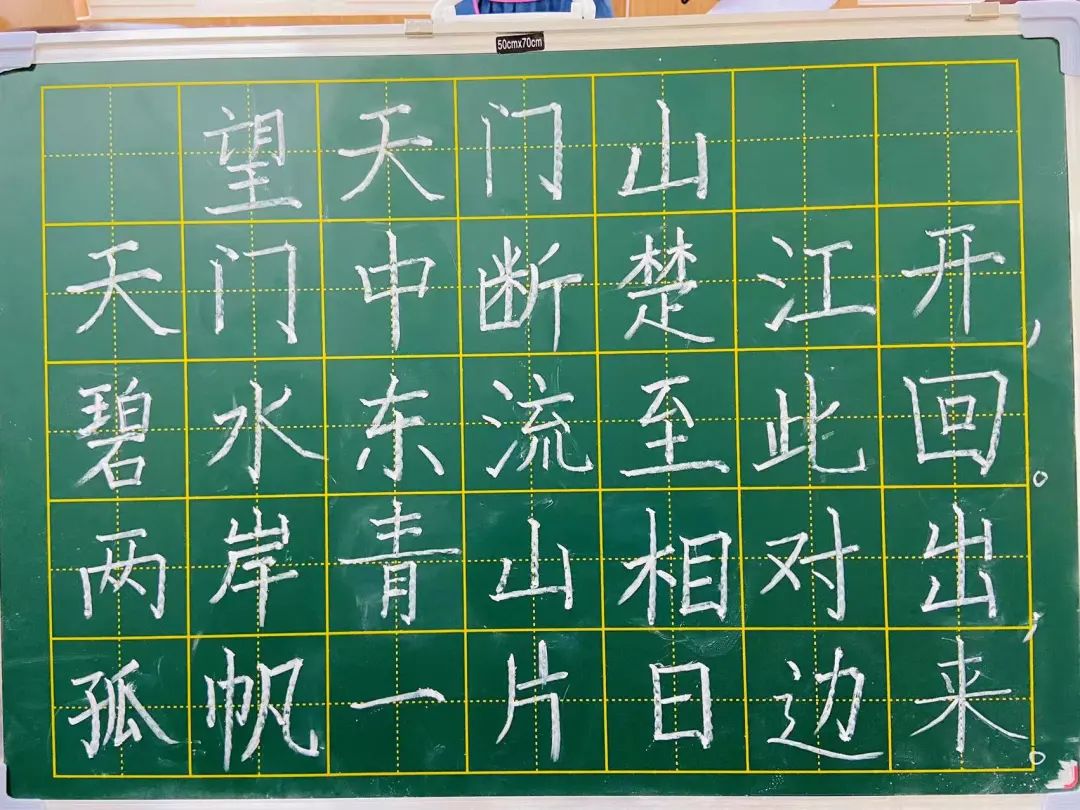 50cmx70cm
望天门山
天门中断楚江开，
碧水东流至此回。
两岸青山相对出，
孤帆一片日边来。